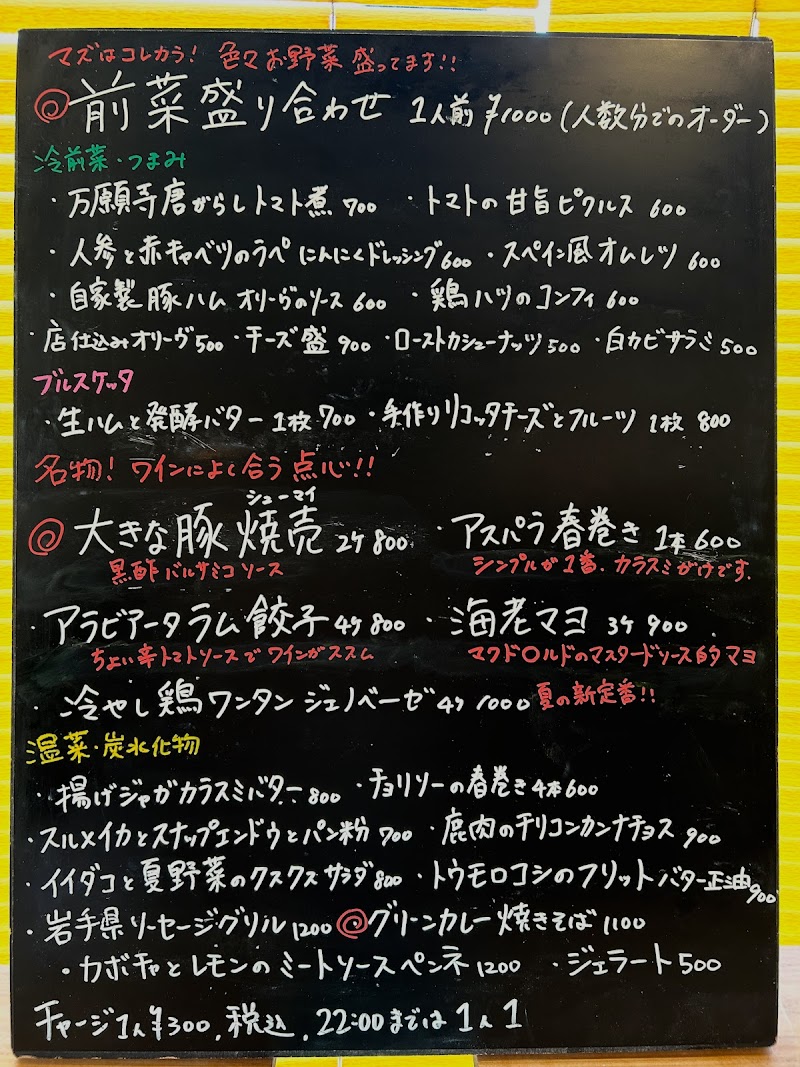 マズはコレカラ! 色々お野菜盛ってます!!
◎前菜盛り合わせ 1人前 ¥1000 (人数分でのオーダー)
冷前菜・つまみ
・万願寺唐がらしトマト煮 700 ・トマトの甘旨ピクルス 600
・人参と赤キャベツのラペ にんにくドレッシング 600 ・スペイン風オムレツ 600
・自家製豚ハム オリーヴのソース 600 ・鶏ハツのコンフィ 600
・店仕込みオリーヴ 500 ・チーズ盛 900 ・ローストカシューナッツ 500 ・白カビサラミ 500
ブルスケッタ
・生ハムと発酵バター 1枚 700 ・手作りリコッタチーズとフルーツ 1枚 800
名物! ワインによく合う点心!!
シューマイ
◎大きな豚焼売 2ケ 800 ・アスパラ春巻き 1本 600
黒酢バルサミコソース シンプルが1番、カラスミがけです.
・アラビアータラム餃子 4ケ 800 ・海老マヨ 3ケ 900
ちょい辛トマトソースでワインがススム マクド〇ルドのマスタードソース的マヨ
・冷やし鶏ワンタン ジェノベーゼ 4ケ 1000 夏の新定番!!
温菜・炭水化物
・揚げジャガカラスミバター 800 ・チョリソーの春巻き 4本 600
・スルメイカとスナップエンドウとパン粉 700 ・鹿肉のチリコンカンナチョス 900
・イイダコと夏野菜のクスクスサラダ 800 ・トウモロコシのフリットバター正油 900
・岩手県ソーセージグリル 1200 ◎グリーンカレー焼きそば 1100
・カボチャとレモンのミートソースペンネ 1200 ・ジェラート 500
チャージ1人¥300, 税込, 22:00までは1人1